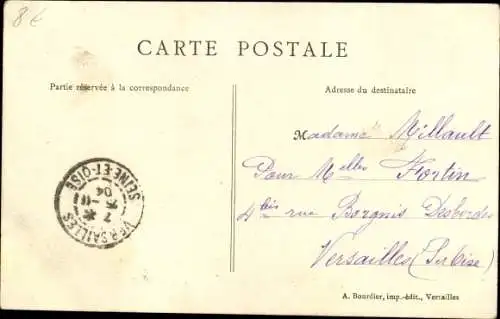 8€
CARTE POSTALE
Partie réservée à la correspondance
Adresse du destinataire
Madame Millault
Pour Melles Fortin
4 bis rue Borgnis Desbordes
Versailles (S et Oise)
VERSAILLES
SEINE-ET-OISE
04
A. Bourdier, imp.-édit., Versailles